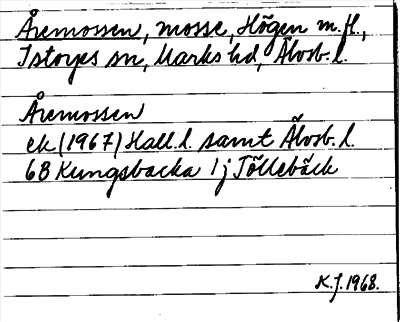 Åremossen, mosse, Högen m.fl.,
Istorps sn, Marks hd, Älvsb. l.
Åremossen
ek (1967) Hall. l. samt Älvsb. l.
6B Kungsbacka 1j Töllebäck
K.J. 1968.